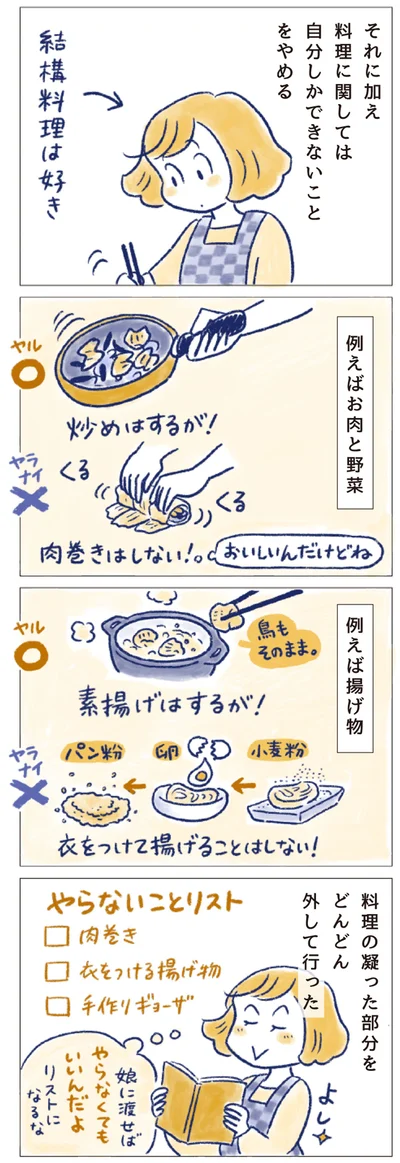 それに加え
料理に関しては
自分しかできないこと
をやめる
結構料理は好き
例えばお肉と野菜
ヤル
炒めはするが!
ヤラ
ナイ
くる
くる
肉巻きはしない!
おいしいんだけどね
例えば揚げ物
ヤル
鳥も
そのまま。
素揚げはするが!
ヤラ
ナイ
小麦粉
卵
パン粉
衣をつけて揚げることはしない!
料理の凝った部分を
どんどん
外して行った
やらないことリスト
肉巻き
衣をつける揚げ物
手作りギョーザ
よし
娘に渡せば
やらなくても
いいんだよ
リストに
なるな